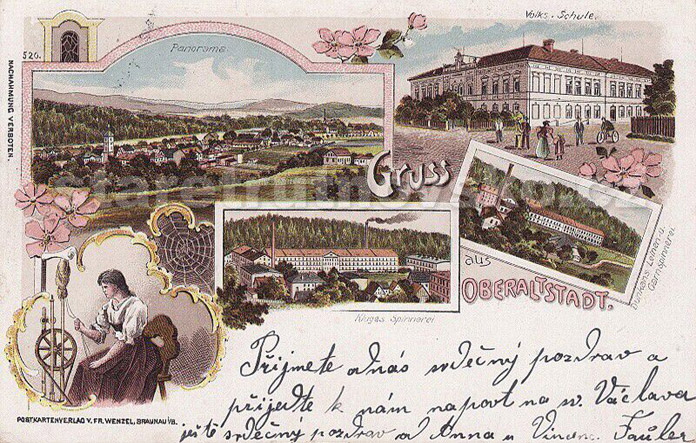 520.
NACHAHMUNG VERBOTEN.
Panorama.
Volks-Schule.
Gruss
aus
OBERALTSTADT.
Kluges Spinnerei
Leinen- u.
Garnspinnerei.
POSTKARTENVERLAG V. FR. WENZEL, BRAUNAU i/B.
Přijmete od nás srdečný pozdrav a
přijeďte k nám na pout na sv. Václava
ještě srdečný pozdrav od Anna u Vinc.